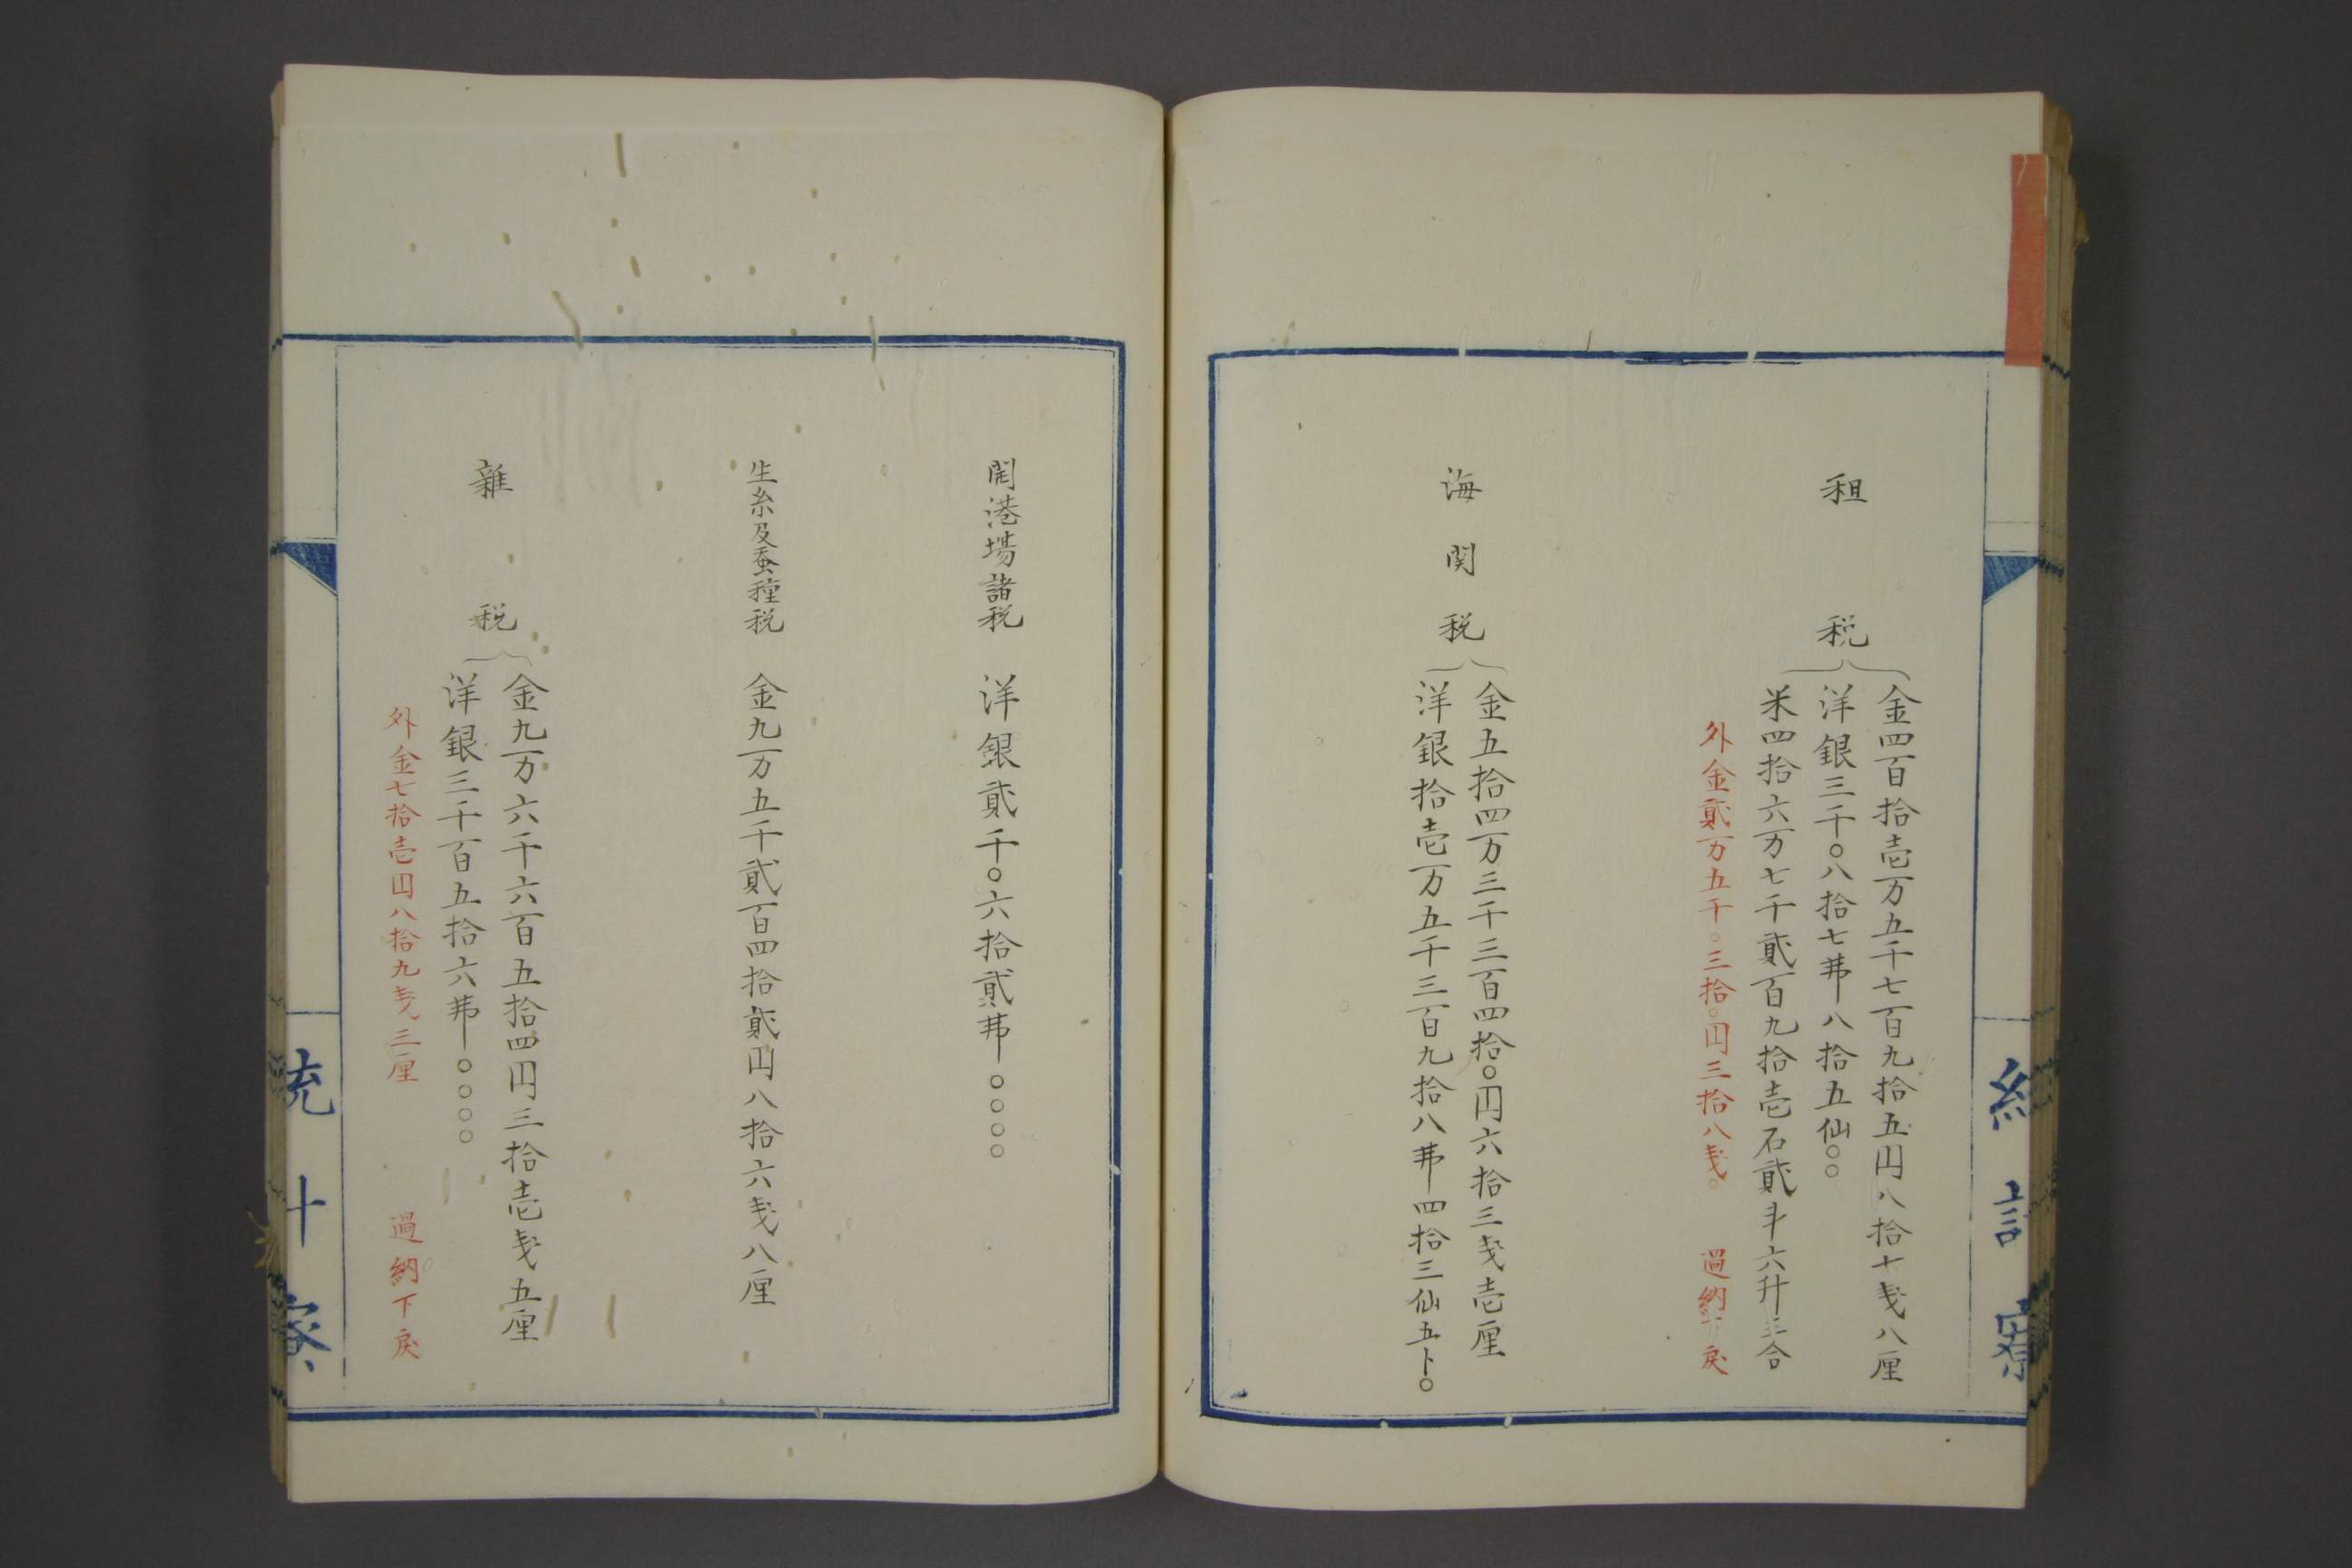 租税
金四百拾壱万五千七百九拾五円八拾十戔八厘
洋銀三千〇八拾七弗八拾五仙〇〇
米四拾六万七千貳百九拾壱石貳斗六升三合
外金貳万五千〇三拾〇円三拾八戔〇 過納下戻
海関税
金五拾四万三千三百四拾〇円六拾三戔壱厘
洋銀拾壱万五千三百九拾八弗四拾三仙五卜〇
開港場諸税 洋銀貳千〇六拾貳弗〇〇〇〇
生糸及蚕種税 金九万五千貳百四拾貳円八拾六戔八厘
雜税
金九万六千六百五拾四円三拾壱戔五厘
洋銀三千百五拾六弗〇〇〇〇
外金七拾壱円八拾九戔三厘 過納下戻